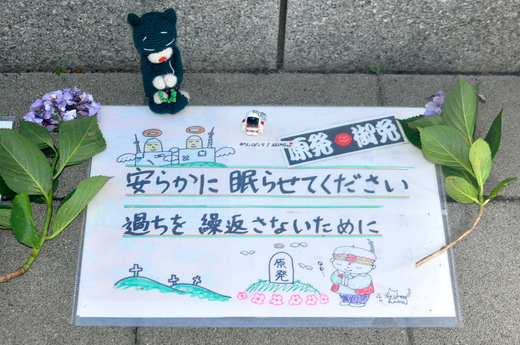 原発 御免
安らかに 眠らせてください
過ちを 繰返さないために
原発